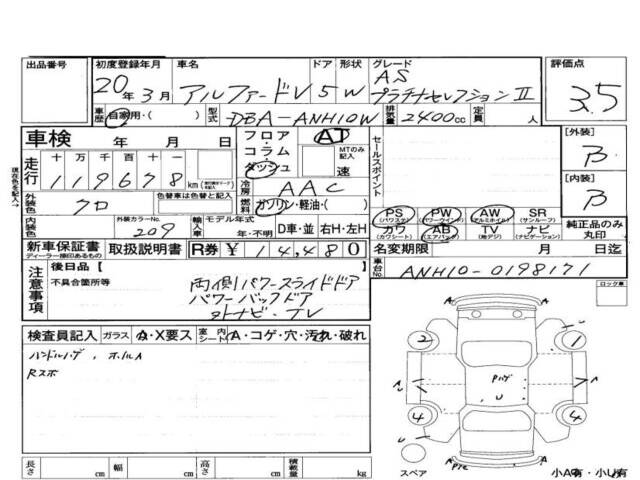 出品番号 初度登録年月 車名 ドア 形状 グレード 評価点
20年3月 アルファードV 5 W AS プラチナセレクションⅡ 3.5
車歴 自家用・( ) 型式 DBA-ANH10W 排気量 2400cc 定員 人
車検 年 月 日 フロア・コラム・ダッシュ AT MTのみ記入 速 セールスポイント [外装] B
走行 十万千百十一 119678 km 冷房 AAC [内装] B
外装色 クロ 色替車は色替色を記入 燃料 ガソリン・軽油・( )
内装色 外装カラーNo. 209 輸入車 モデル年式 年・不明 D車・並 右H・左H
PS (パワステ) PW (パワーウインド) AW (アルミホイル) SR (サンルーフ)
カワ (カワシート) AB (エアバック) TV (地デジ) ナビ (ナビゲーション) 純正品のみ丸印
新車保証書 ディーラー捺印あるもの 取扱説明書 R券 ¥ 14,480 名変期限 月 日迄
車台No. ANH10-0198171
注意事項 後日品 [ ]
不具合箇所等 両側パワースライドドア
パワーバックドア
外ナビ・TV
ロック車
検査員記入 ガラス A・X要ス 室内シート A・コゲ・穴・汚れ・破れ
ハンドルハゲ、ホイルA
Rスポ
A A
2 1
Pハゲ
U
4 4
A
スペア 小A有・小U有
長さ cm 幅 cm 高さ cm 積載量 kg
現在の色を記入